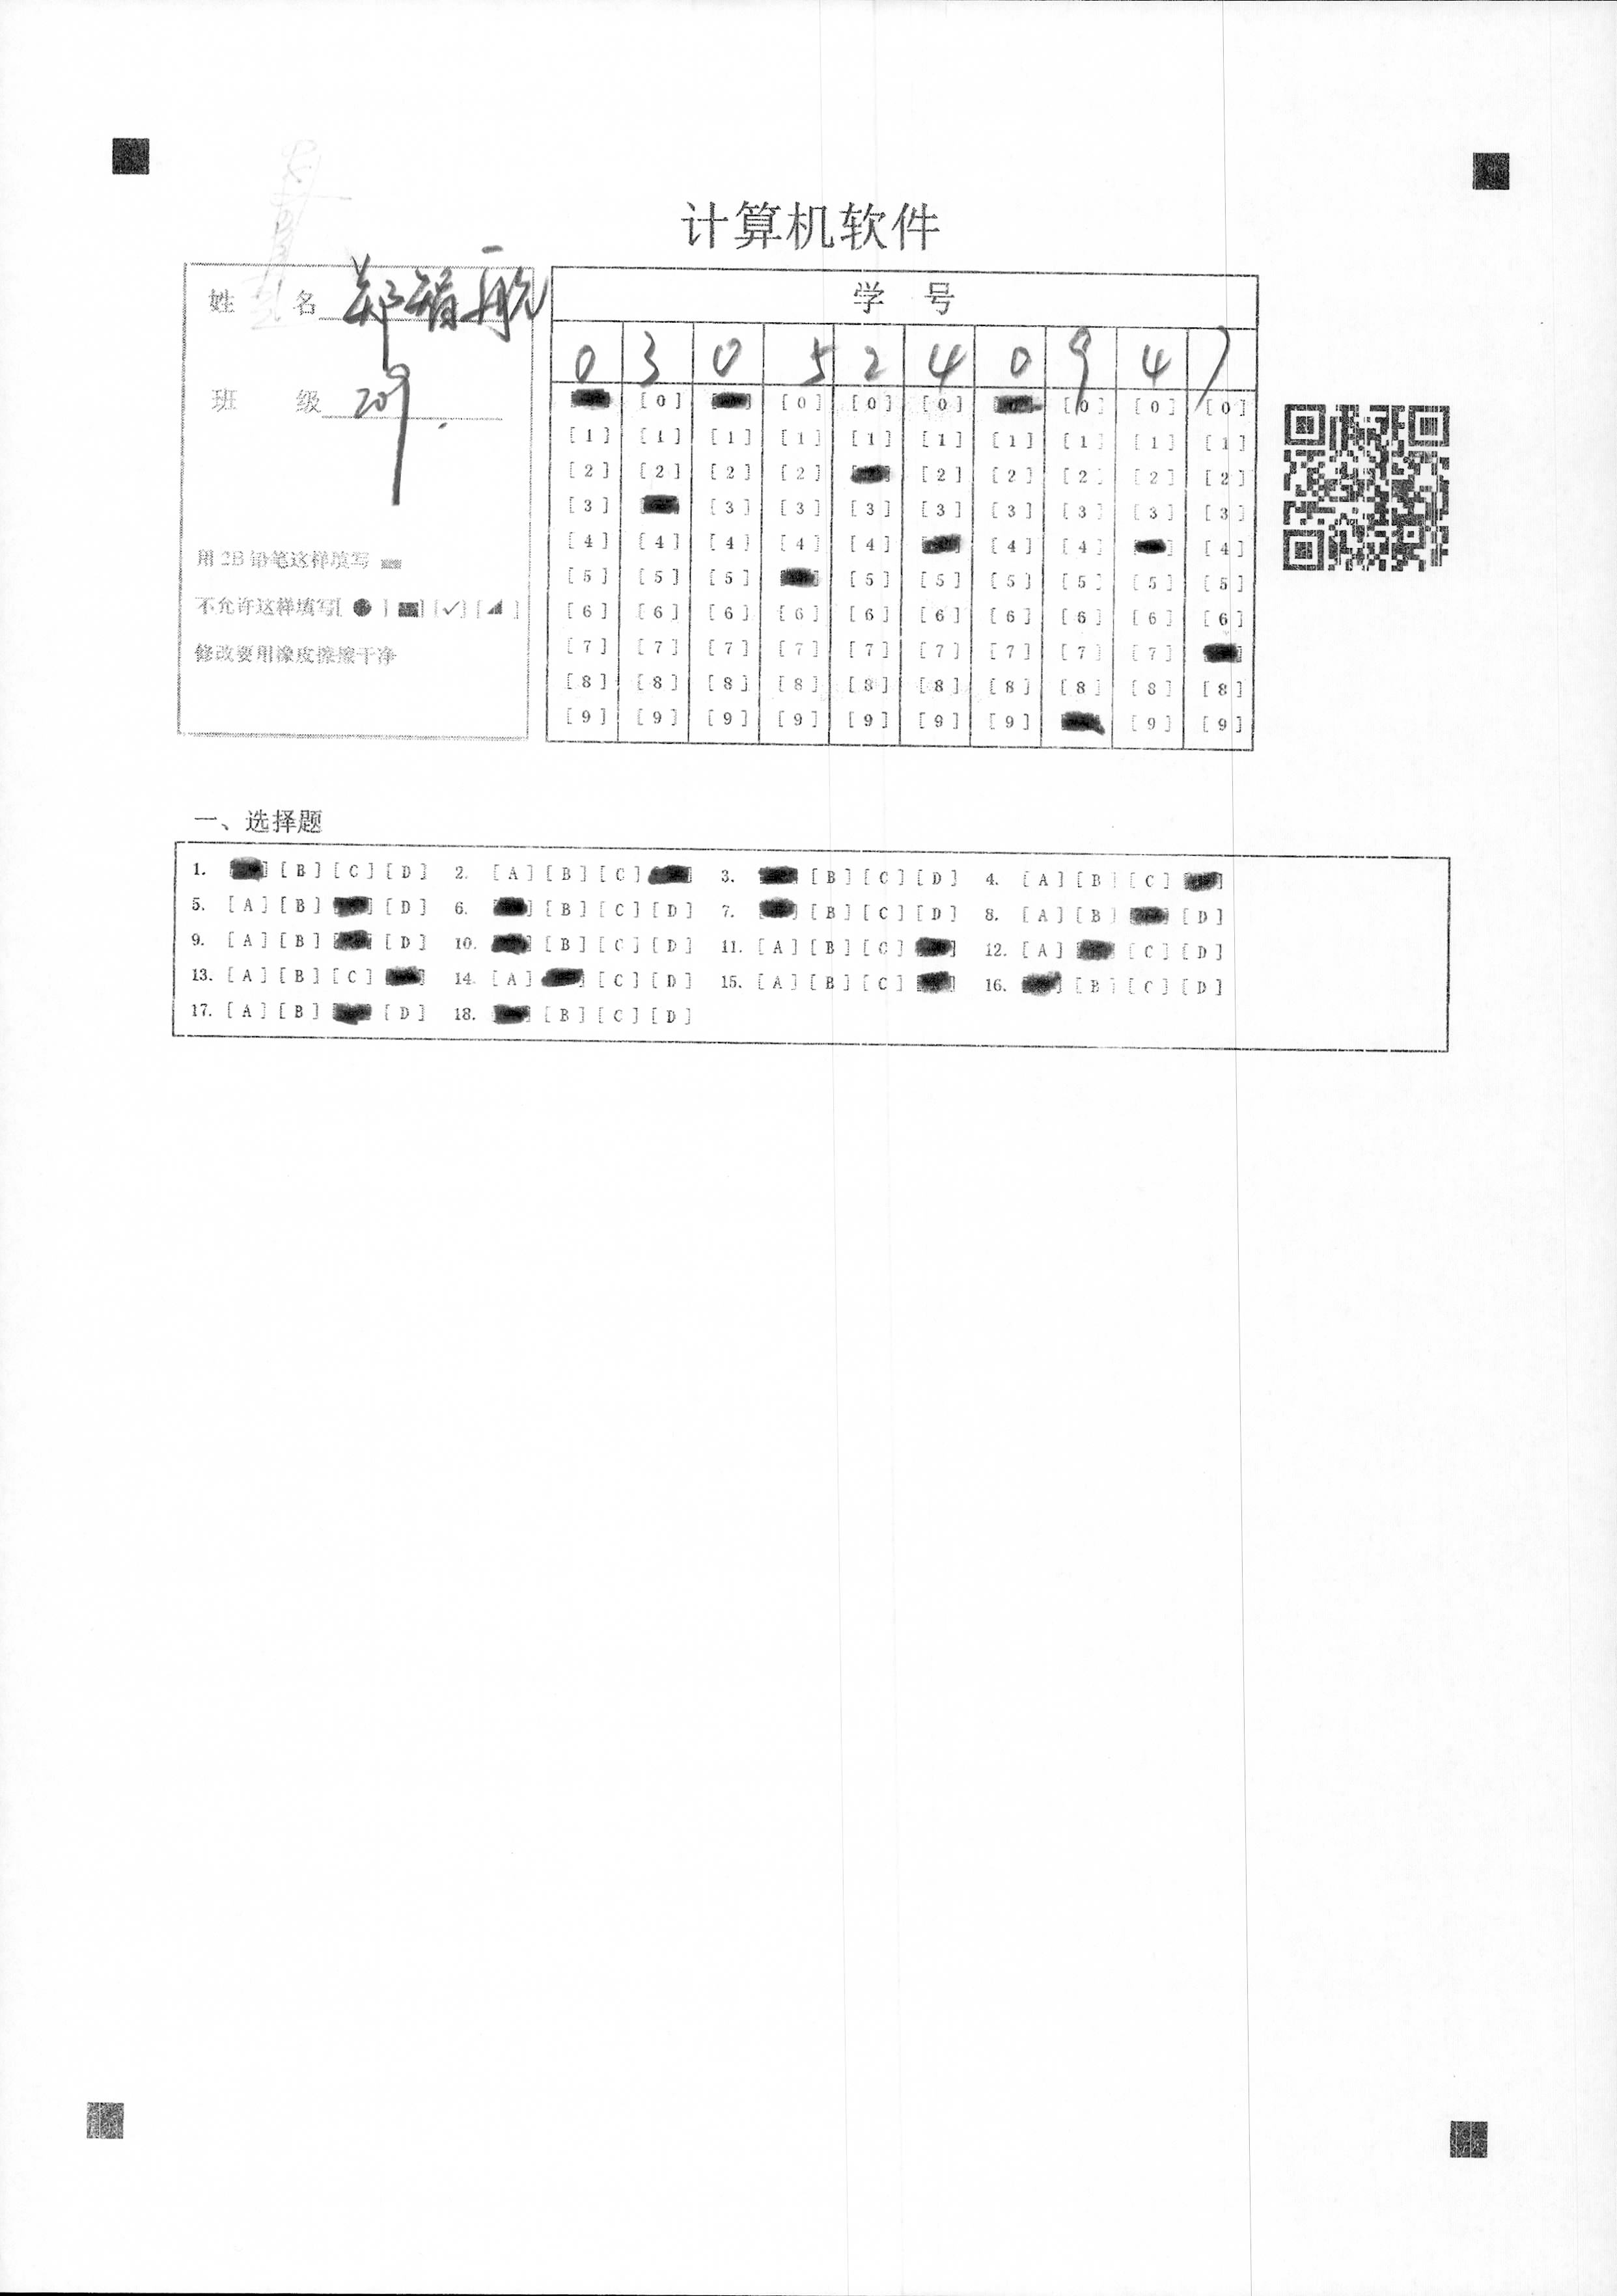 计算机软件
姓 名 郑智航
班 级 209
用2B铅笔这样填写
不允许这样填写[ ● ] [■] [✓] [◢]
修改要用橡皮擦擦干净
学 号
0 3 0 5 2 4 0 9 4 7
[0] [0] [0] [0] [0] [0] [0]
[1] [1] [1] [1] [1] [1] [1] [1] [1] [1]
[2] [2] [2] [2] [2] [2] [2] [2] [2]
[3] [3] [3] [3] [3] [3] [3] [3] [3]
[4] [4] [4] [4] [4] [4] [4] [4]
[5] [5] [5] [5] [5] [5] [5] [5] [5]
[6] [6] [6] [6] [6] [6] [6] [6] [6] [6]
[7] [7] [7] [7] [7] [7] [7] [7] [7]
[8] [8] [8] [8] [8] [8] [8] [8] [8] [8]
[9] [9] [9] [9] [9] [9] [9] [9] [9]
一、选择题
1. [B] [C] [D] 2. [A] [B] [C] 3. [B] [C] [D] 4. [A] [B] [C]
5. [A] [B] [D] 6. [B] [C] [D] 7. [B] [C] [D] 8. [A] [B] [D]
9. [A] [B] [D] 10. [B] [C] [D] 11. [A] [B] [C] 12. [A] [C] [D]
13. [A] [B] [C] 14. [A] [C] [D] 15. [A] [B] [C] 16. [B] [C] [D]
17. [A] [B] [D] 18. [B] [C] [D]